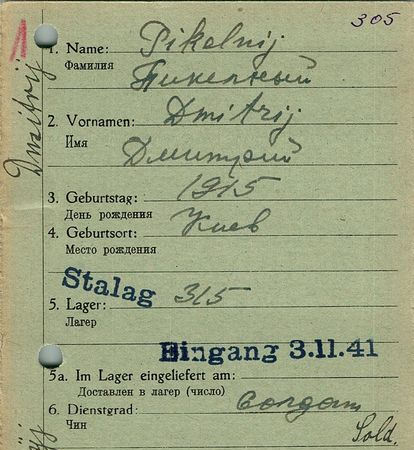 305
1. Name: Pikelnij
Фамилия Пикельный
2. Vornamen: Dmitrij
Имя Дмитрий
3. Geburtstag: 1915
День рождения
4. Geburtsort: Киев
Место рождения
Stalag
5. Lager: 315
Лагер
Eingang 3.11.41
5a. Im Lager eingeliefert am:
Доставлен в лагер (число)
6. Dienstgrad: солдат
Чин Sold.
Dmitrij